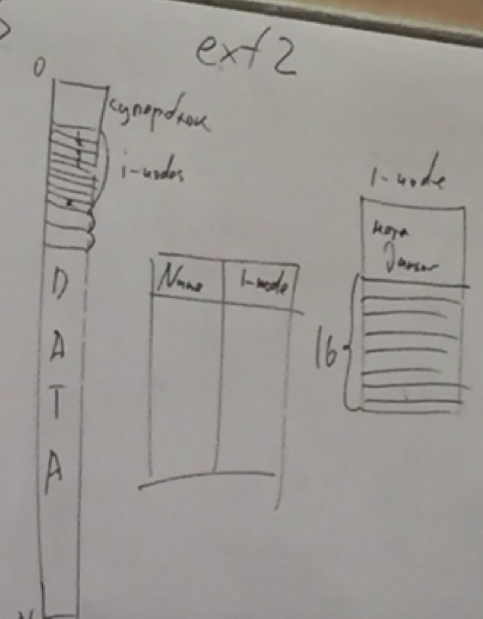 ext2
0
суперблок
i-nodes
D
A
T
A
Name
I-node
I-node
мета
данные
16